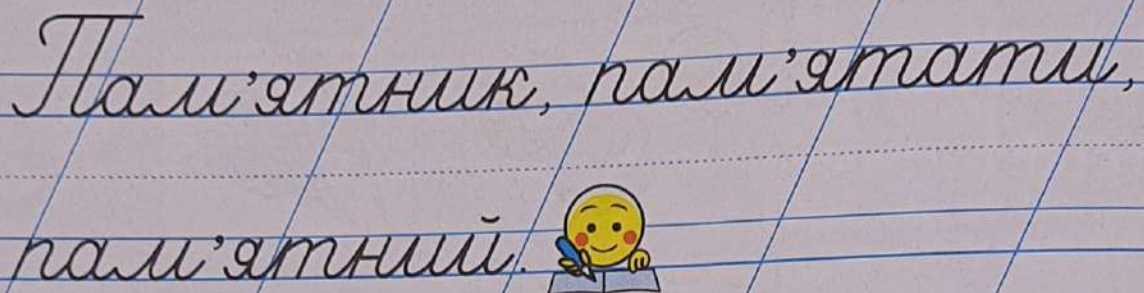 Пам'ятник, пам'ятати,
пам'ятний.